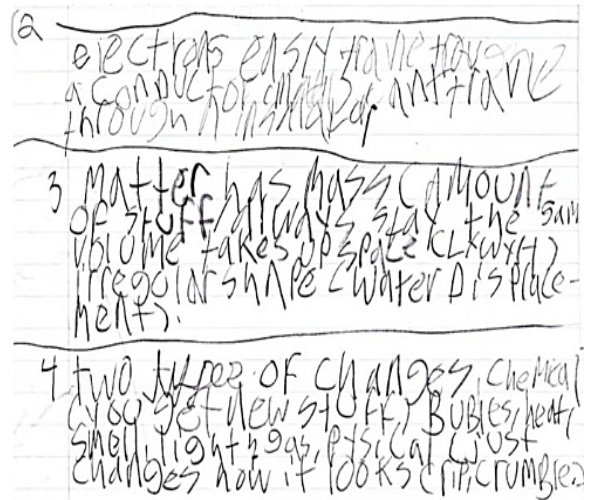 (2
electrons easly travle trough
a conductor and cant travle
through n insulator
3 Matter has mass (amount
of stuff) always stay the sam
volume takes up space (LxWxH)
irregolar shape (water Displace-
ment).
4 two types of changes, chemical
(you get new stuff) Bubles, heat,
smell, light, gas, Pysical (just
changes how it looks (rip, crumble.)